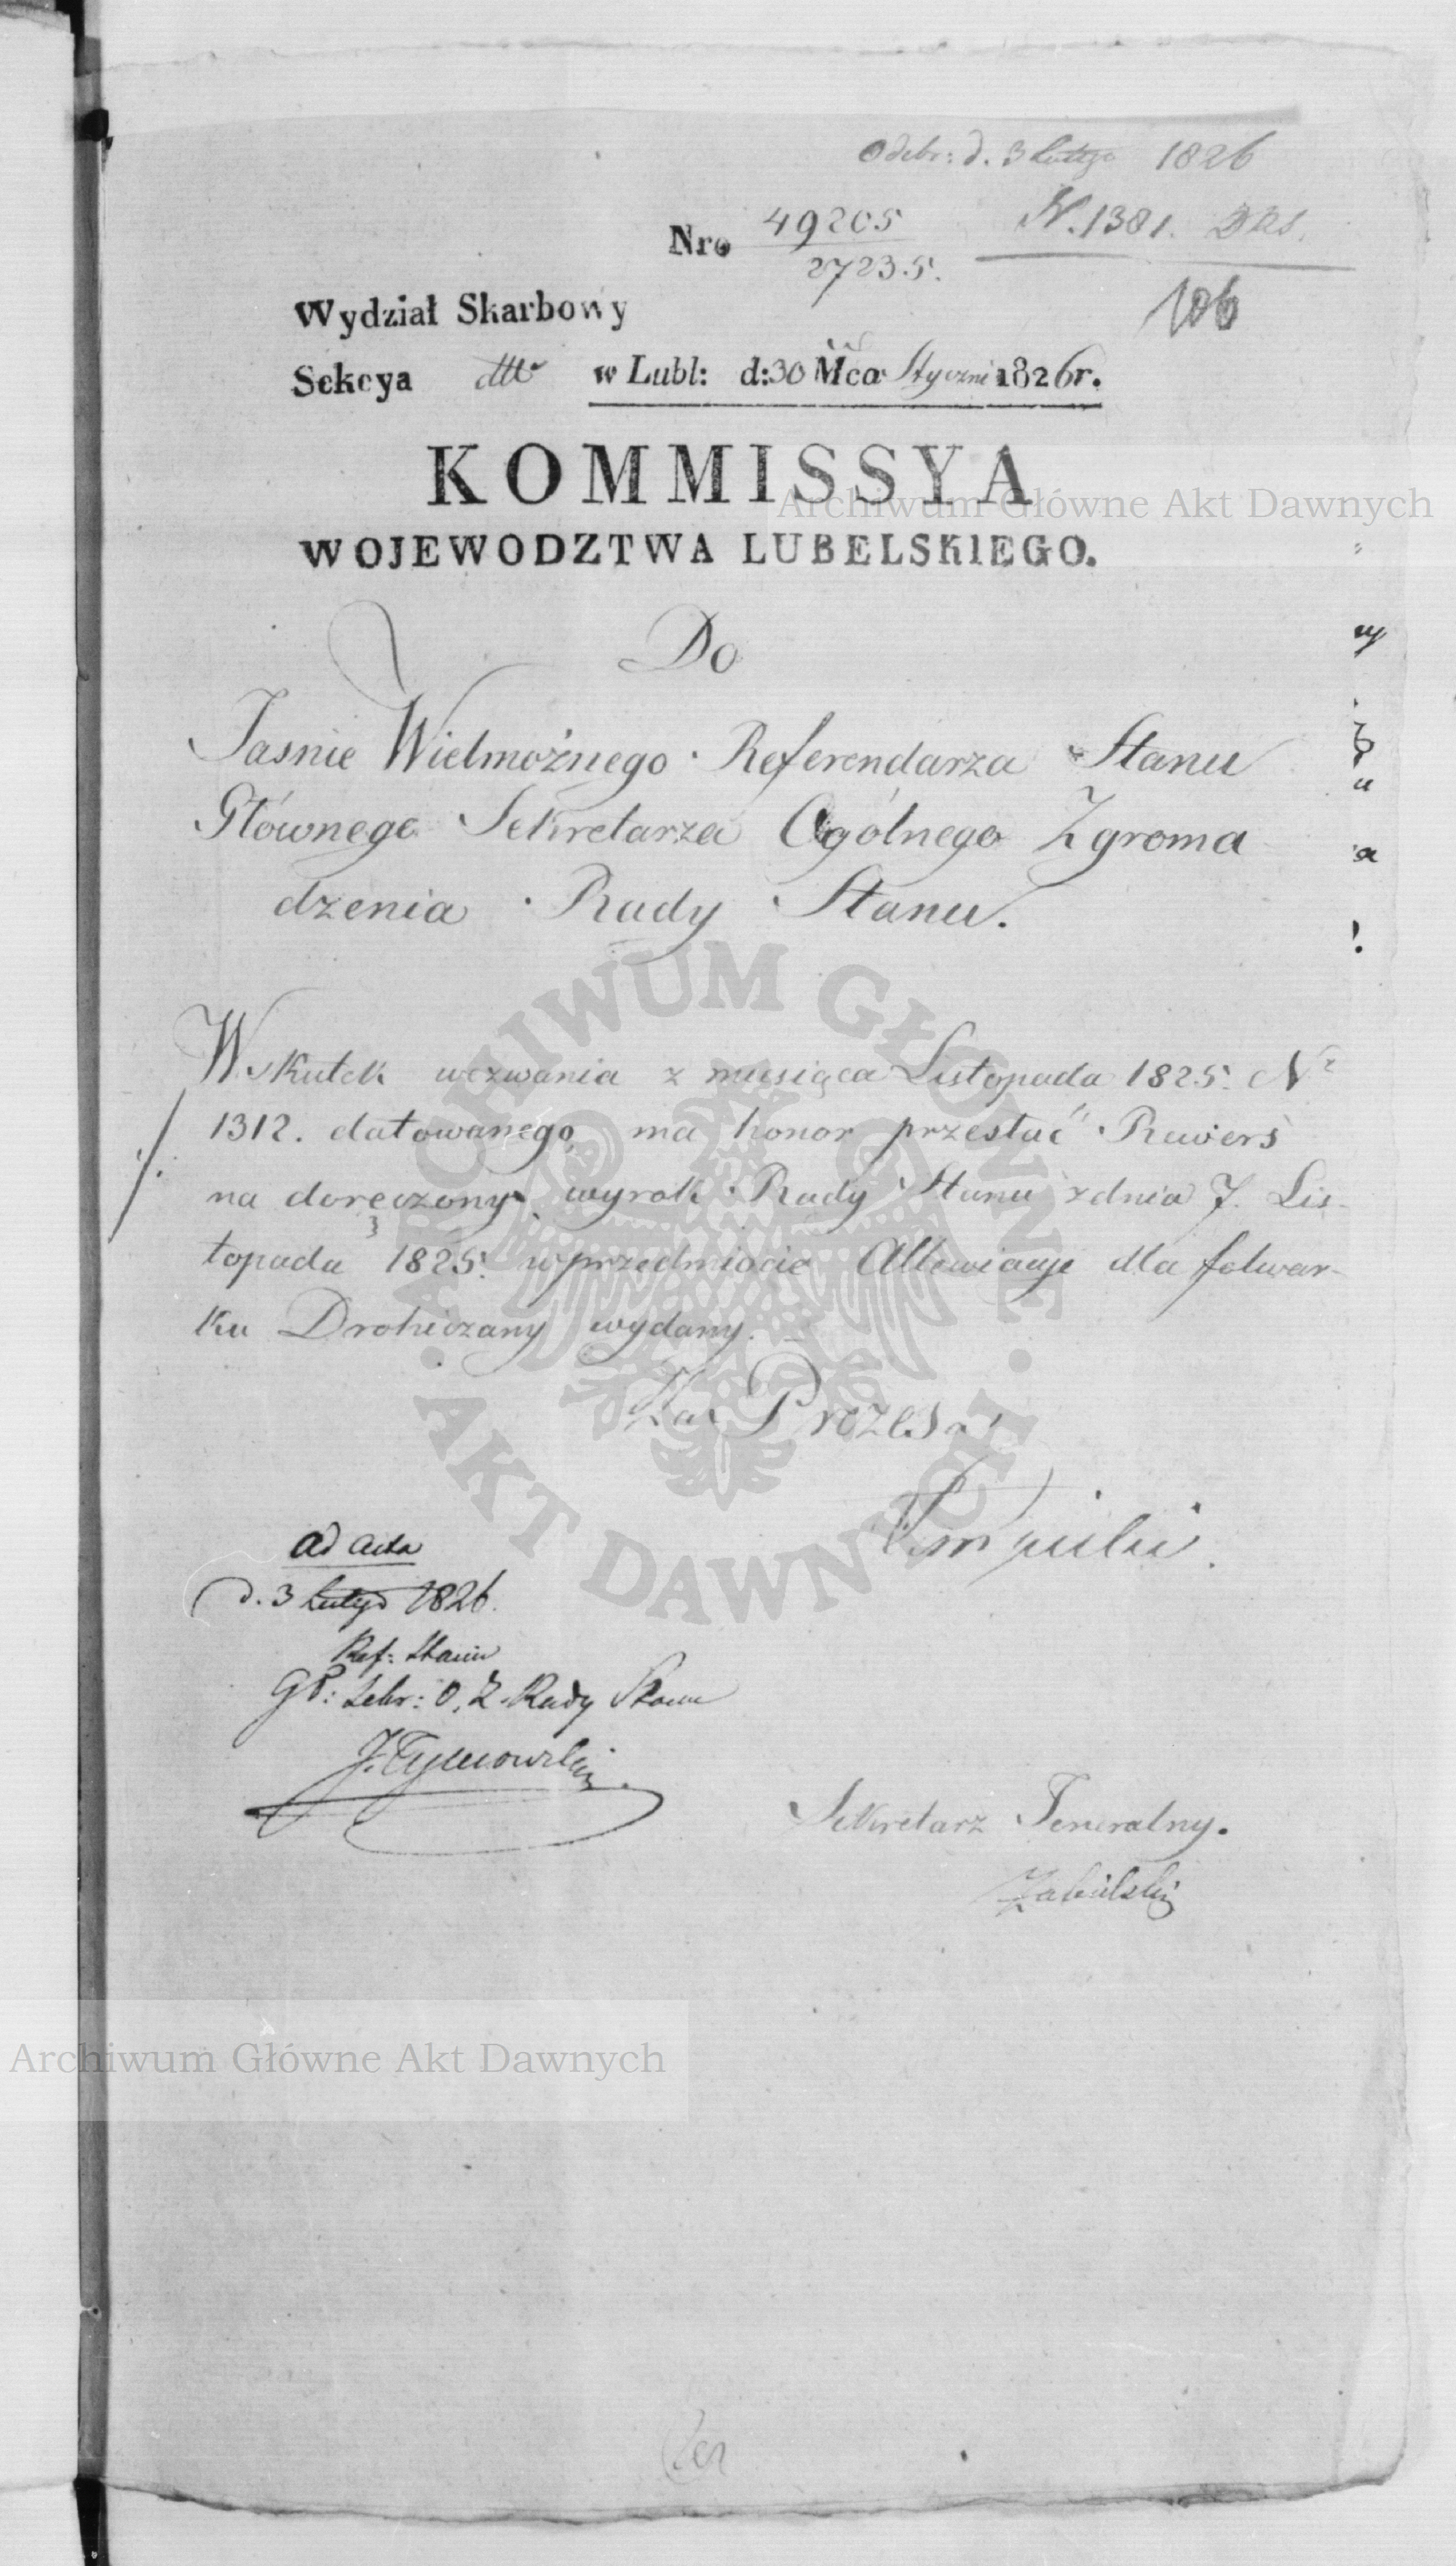 Odebr: d. 3 Lutego 1826
N. 1381.
Nro 49205
27235.
106
Wydział Skarbowy
Sekcya w Lubl: d: 30 Mca Styczni 1826 r.
KOMMISSYA
WOJEWODZTWA LUBELSKIEGO.
Do
Jasnie Wielmożnego Referendarza Stanu
Głównego Sekretarza Ogólnego Zgroma
dzenia Rady Stanu.
Wskutek wezwania z miesiąca Listopada 1825. Nr
1312. datowanego, ma honor przesłać Rewers
na doręczony wyrok Rady Stanu z dnia 7. Lis-
topada 1825. w przedmiocie Allewiacyi dla folwar-
ku Drohiczany wydany.
Za Prezesa
ad acta
d. 3 Lutego 1826.
Ref: Stanu
Gł: Sekr: O. Z. Rady Stanu
J. Tymowski
Sekretarz Jeneralny.
Archiwum Główne Akt Dawnych
ARCHIWUM GŁÓWNE · AKT DAWNYCH ·
Archiwum Główne Akt Dawnych